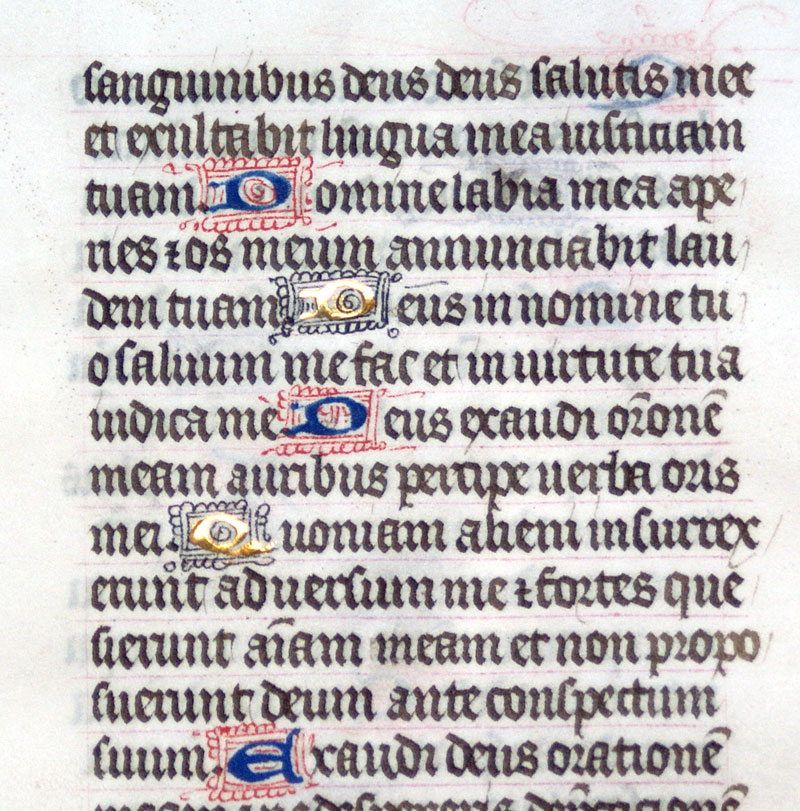 sanguinibus deus deus salutis mee
et exultabit lingua mea iusticiam
tuam. Domine labia mea ape
ries ⁊ os meum annunciabit lau
dem tuam Deus in nomine tu
o saluum me fac et in uirtute tua
iudica me Deus exaudi or̄onē
meam auribus percipe uerba oris
mei. Quoniam alieni insurrex
erunt aduersum me ⁊ fortes que
sierunt aīam meam et non propo
suerunt deum ante conspectum
suum Exaudi deus orationē